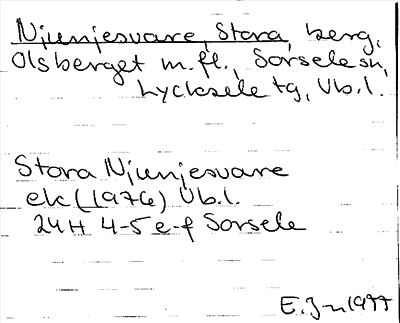 Njunjesvare, Stora, berg,
Olsberget m.fl., Sorsele sn,
Lycksele tg, Vb.l.
Stora Njunjesvare
ek (1976) Vb.l.
24H 4-5 e-f Sorsele
E.J-n 1977